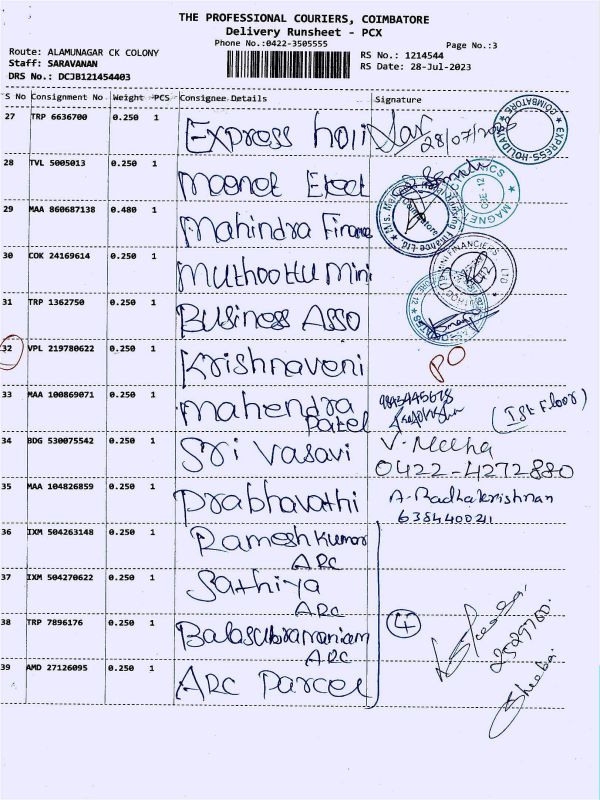 THE PROFESSIONAL COURIERS, COIMBATORE
Delivery Runsheet - PCX
Phone No.:0422-3505555
Page No.:3
Route: ALAMUNAGAR CK COLONY
Staff: SARAVANAN
DRS No.: DCJB121454403
RS No.: 1214544
RS Date: 28-Jul-2023
S No Consignment No Weight PCS Consignee Details Signature
27 TRP 6636700 0.250 1 Express holi
28/07/2023
COIMBATORE EXPRESS-HOLIDAY
28 TVL 5005013 0.250 1 Magnet Elect
MAGNE CBE-12
29 MAA 860687138 0.480 1 Mahindra Finance
Coimbatore
30 COK 24169614 0.250 1 Muthoottu Mini
FINANCIERS LTD
31 TRP 1362750 0.250 1 Business Asso
32 VPL 219780622 0.250 1 Krishnaveni PO
33 MAA 100869071 0.250 1 Mahendra Patel
(Ist Floor)
34 BDG 530075542 0.250 1 Sri Vasavi V. Meena
0422-4272880
35 MAA 104826859 0.250 1 Prabhavathi A. Radhakrishnan
638440021
36 IXM 504263148 0.250 1 Ramesh Kumar
ARC
37 IXM 504270622 0.250 1 Sathiya
ARC
38 TRP 7896176 0.250 1 Balasubramaniam 4
ARC
39 AMD 27126095 0.250 1 ARC Parcel